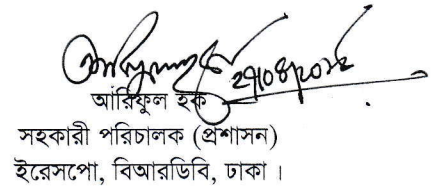 ২৭/০৪/২০১৮
আরিফুল হক
সহকারী পরিচালক (প্রশাসন)
ইরেসপো, বিআরডিবি, ঢাকা ।